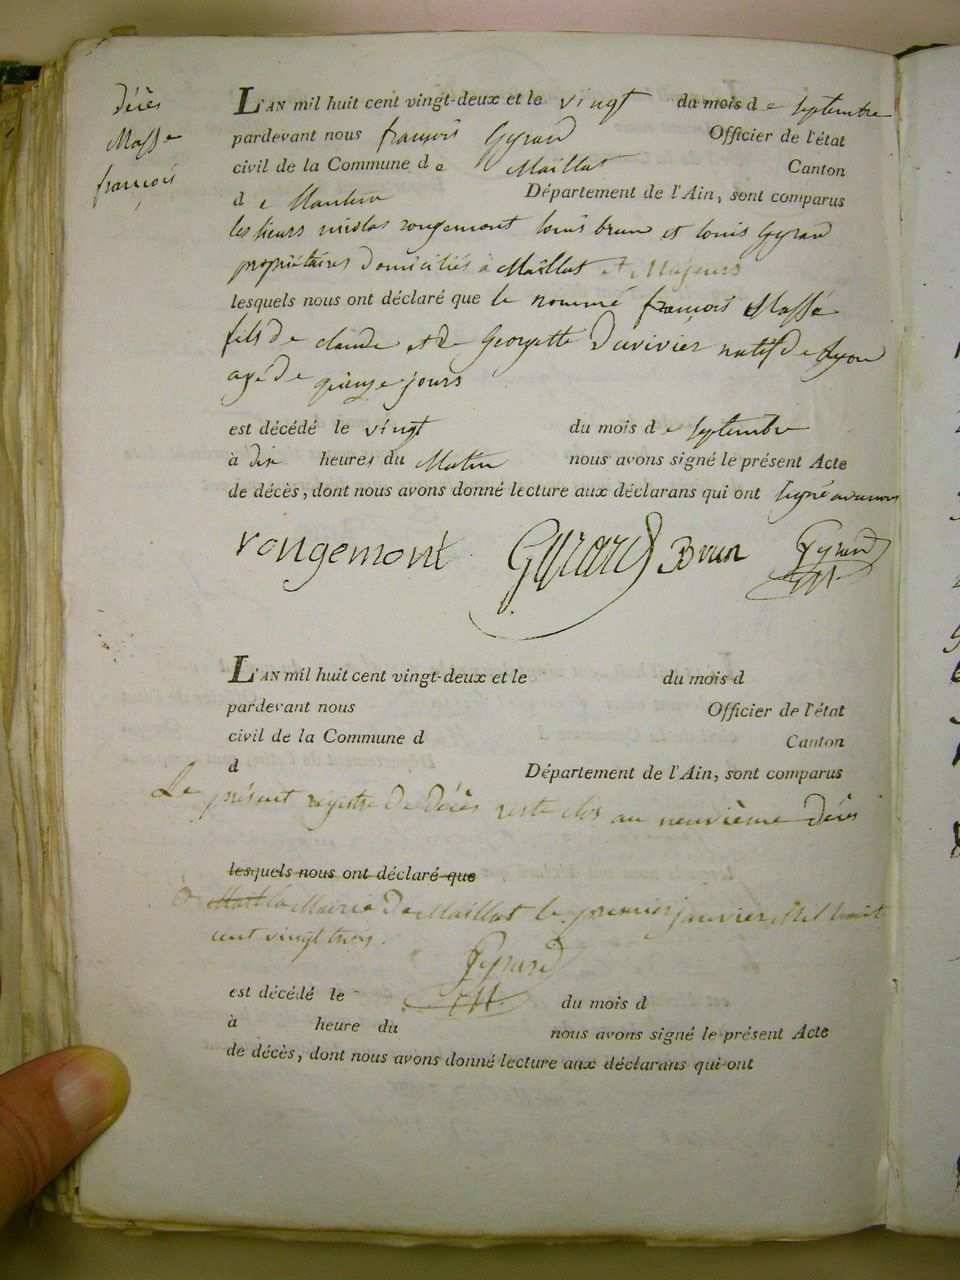 décès
Masse
françois
L'AN mil huit cent vingt-deux et le vingt du mois de septembre
pardevant nous françois Gyrard Officier de l'état
civil de la Commune de Maillat Canton
de Nantua Département de l'Ain, sont comparus
les sieurs nicolas rougemont louis brun et louis Gyrard
propriétaires domiciliés à Maillat et Majeurs
lesquels nous ont déclaré que le nommé françois Masse
fils de claude et de Georgette Duvivier natif de Lyon
agé de quinze jours
est décédé le vingt du mois de septembre
à dix heures du Matin nous avons signé le présent Acte
de décès, dont nous avons donné lecture aux déclarans qui ont signé avec nous
rougemont Gyrard Brun Gyrard
L'AN mil huit cent vingt-deux et le du mois d
pardevant nous Officier de l'état
civil de la Commune d Canton
d Département de l'Ain, sont comparus
Le présent registre de décès reste clos au neuvième décès
lesquels nous ont déclaré que
à la Mairie de Maillat le premier janvier Mil huit
cent vingt trois.
Gyrard
est décédé le du mois d
à heure du nous avons signé le présent Acte
de décès, dont nous avons donné lecture aux déclarans qui ont